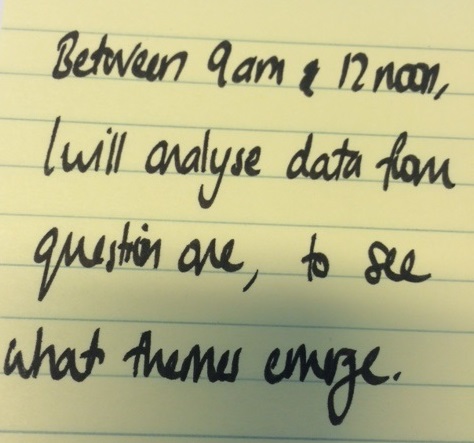 Between 9am & 12 noon,
I will analyse data from
question one, to see
what themes emerge.